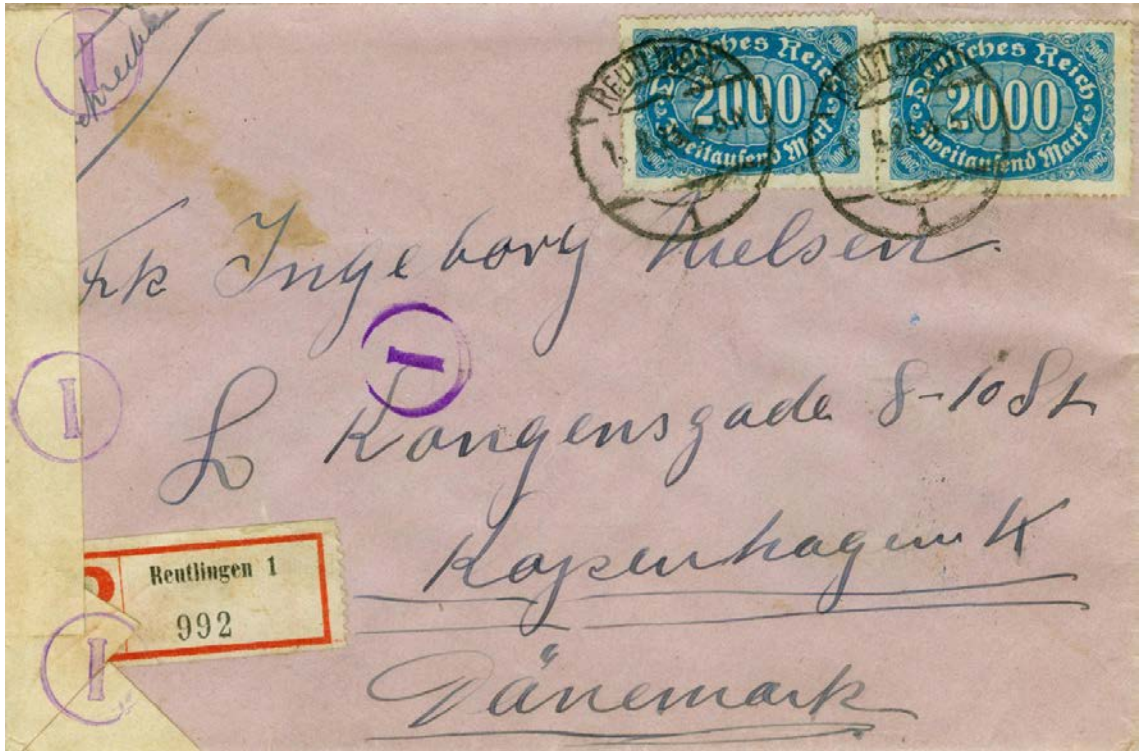 I
Deutsches Reich
2000
Zweitausend Mark
Deutsches Reich
2000
Zweitausend Mark
REUTLINGEN
1
REUTLINGEN
1
Frk Ingeborg Nielsen
I
I
L Kongensgade 8-10 St
Kopenhagen K
Reutlingen 1
992
I
Dänemark